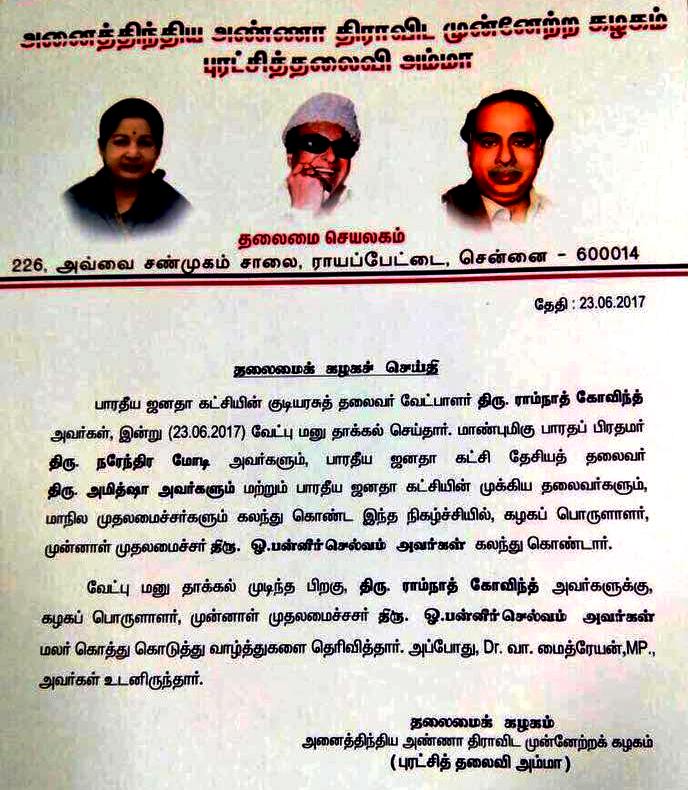 அனைத்திந்திய அண்ணா திராவிட முன்னேற்ற கழகம்
புரட்சித்தலைவி அம்மா
தலைமை செயலகம்
226, அவ்வை சண்முகம் சாலை, ராயப்பேட்டை, சென்னை - 600014
தேதி : 23.06.2017
தலைமைக் கழகச் செய்தி
பாரதீய ஜனதா கட்சியின் குடியரசுத் தலைவர் வேட்பாளர் திரு. ராம்நாத் கோவிந்த்
அவர்கள், இன்று (23.06.2017) வேட்பு மனு தாக்கல் செய்தார். மாண்புமிகு பாரதப் பிரதமர்
திரு. நரேந்திர மோடி அவர்களும், பாரதீய ஜனதா கட்சி தேசியத் தலைவர்
திரு. அமித்ஷா அவர்களும் மற்றும் பாரதீய ஜனதா கட்சியின் முக்கிய தலைவர்களும்,
மாநில முதலமைச்சர்களும் கலந்து கொண்ட இந்த நிகழ்ச்சியில், கழகப் பொருளாளர்,
முன்னாள் முதலமைச்சர் திரு. ஓ.பன்னீர்செல்வம் அவர்கள் கலந்து கொண்டார்.
வேட்பு மனு தாக்கல் முடிந்த பிறகு, திரு. ராம்நாத் கோவிந்த் அவர்களுக்கு,
கழகப் பொருளாளர், முன்னாள் முதலமைச்சசர் திரு. ஓ.பன்னீர்செல்வம் அவர்கள்
மலர் கொத்து கொடுத்து வாழ்த்துகளை தெரிவித்தார். அப்போது, Dr. வா. மைத்ரேயன்,MP.,
அவர்கள் உடனிருந்தார்.
தலைமைக் கழகம்
அனைத்திந்திய அண்ணா திராவிட முன்னேற்றக் கழகம்
(புரட்சித் தலைவி அம்மா)